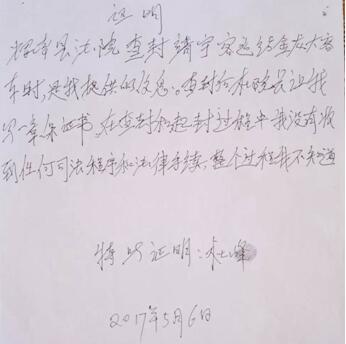 证明
辉南县法院查封靖宇客运站金龙大客
车时,是我提供的信息。查封后本院长让我
写一章保证书,在查封和起封过程中我没有收
到任何司法程序和法律手续,整个过程我不知道
特此证明:
2017年5月6日